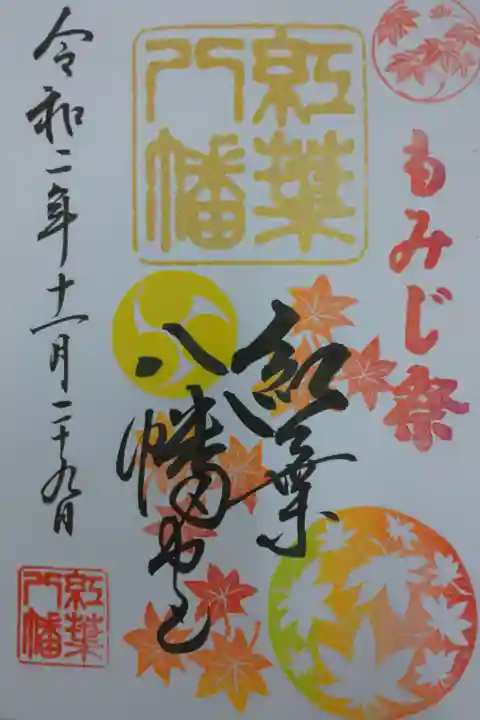 もみじ祭
紅葉
八幡
紅葉
八幡
令和二年十一月二十九日
紅葉
八幡